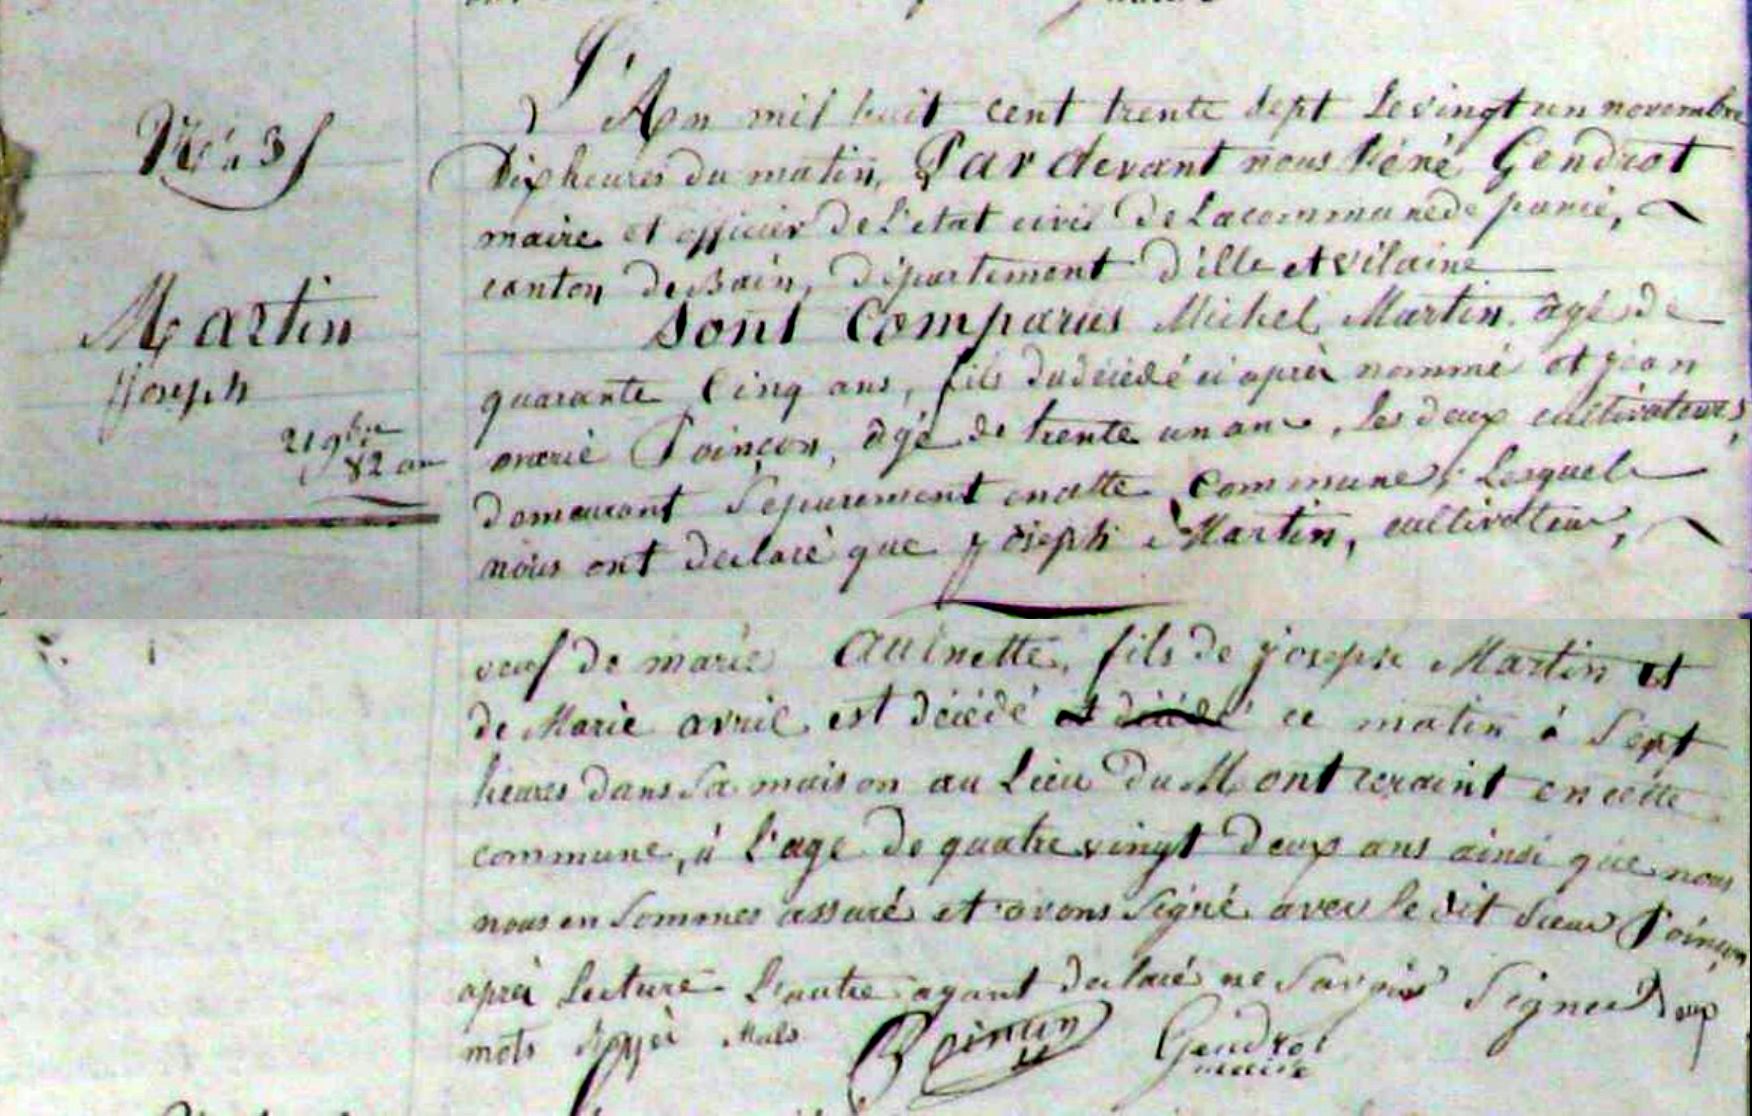 N.º 35
Martin
joseph
21 9bre
82 ans
L'An mil huit cent trente sept Le vingt un novembre
Dix heures du matin, Par devant nous Réné Gendrot
maire et officier de L'etat civil De La commune de pancé,
canton de Bain, Département d'ille et vilaine
Sont Comparus Michel Martin, âgé de
quarante Cinq ans, fils du décédé ci après nommé et jean
marie Poinçon, âgé de trente un ans, les deux cultivateurs,
demeurant séparement en cette commune, Lesquels
nous ont declaré que joseph Martin, cultivateur,
veuf de marie Aulnette, fils de joseph Martin et
de Marie avril est décédé est décédé ce matin à Sept
heures dans Sa maison au Lieu du Mont en cette
commune, à l'age de quatre vingt deux ans ainsi que nous
nous en Sommes assuré et avons Signé avec le dit Sieur Poinçon
après Lecture L'autre ayant declaré ne Savoir Signer Deux
mots Rayés Nuls Poinçon Gendrot
maire